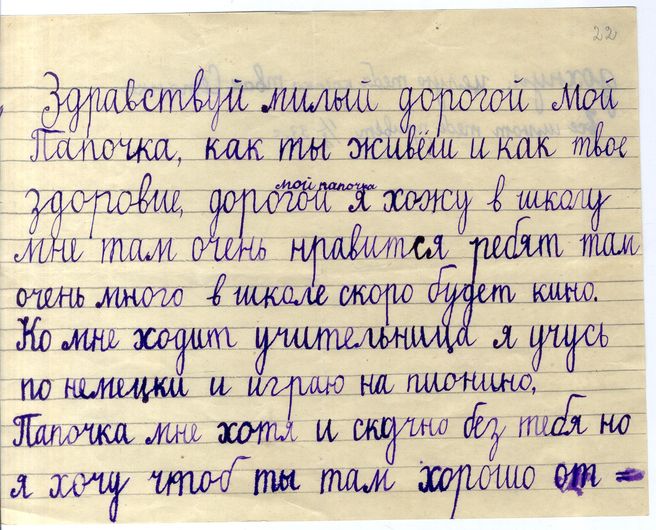 22
Здравствуй милый дорогой мой
Папочка, как ты живёш и как твое
мой папочка
здоровие, дорогой я хожу в школу
мне там очень нравится ребят там
очень много в школе скоро будет кино.
Ко мне ходит учительница я учусь
по немецки и играю на пионино,
Папочка мне хотя и скучно без тебя но
я хочу чтоб ты там хорошо от=